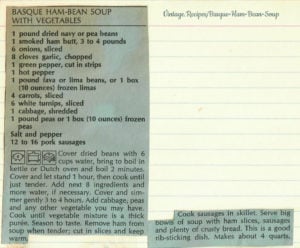 BASQUE HAM-BEAN SOUP
WITH VEGETABLES
1 pound dried navy or pea beans
1 smoked ham butt, 3 to 4 pounds
6 onions, sliced
8 cloves garlic, chopped
1 green pepper, cut in strips
1 hot pepper
1 pound fava or lima beans, or 1 box
(10 ounces) frozen limas
4 carrots, sliced
6 white turnips, sliced
1 cabbage, shredded
1 pound peas or 1 box (10 ounces) frozen
peas
Salt and pepper
12 to 16 pork sausages
Cover dried beans with 6
cups water, bring to boil in
kettle or Dutch oven and boil 2 minutes.
Cover and let stand 1 hour, then cook until
just tender. Add next 8 ingredients and
more water, if necessary. Cover and sim-
mer gently 3 to 4 hours. Add cabbage, peas
and any other vegetable you may have.
Cook until vegetable mixture is a thick
purée. Season to taste. Remove ham from
soup when tender; cut in slices and keep
warm.
Vintage.Recipes/Basque-Ham-Bean-Soup
Cook sausages in skillet. Serve big
bowls of soup with ham slices, sausages
and plenty of crusty bread. This is a good
rib-sticking dish. Makes about 4 quarts.